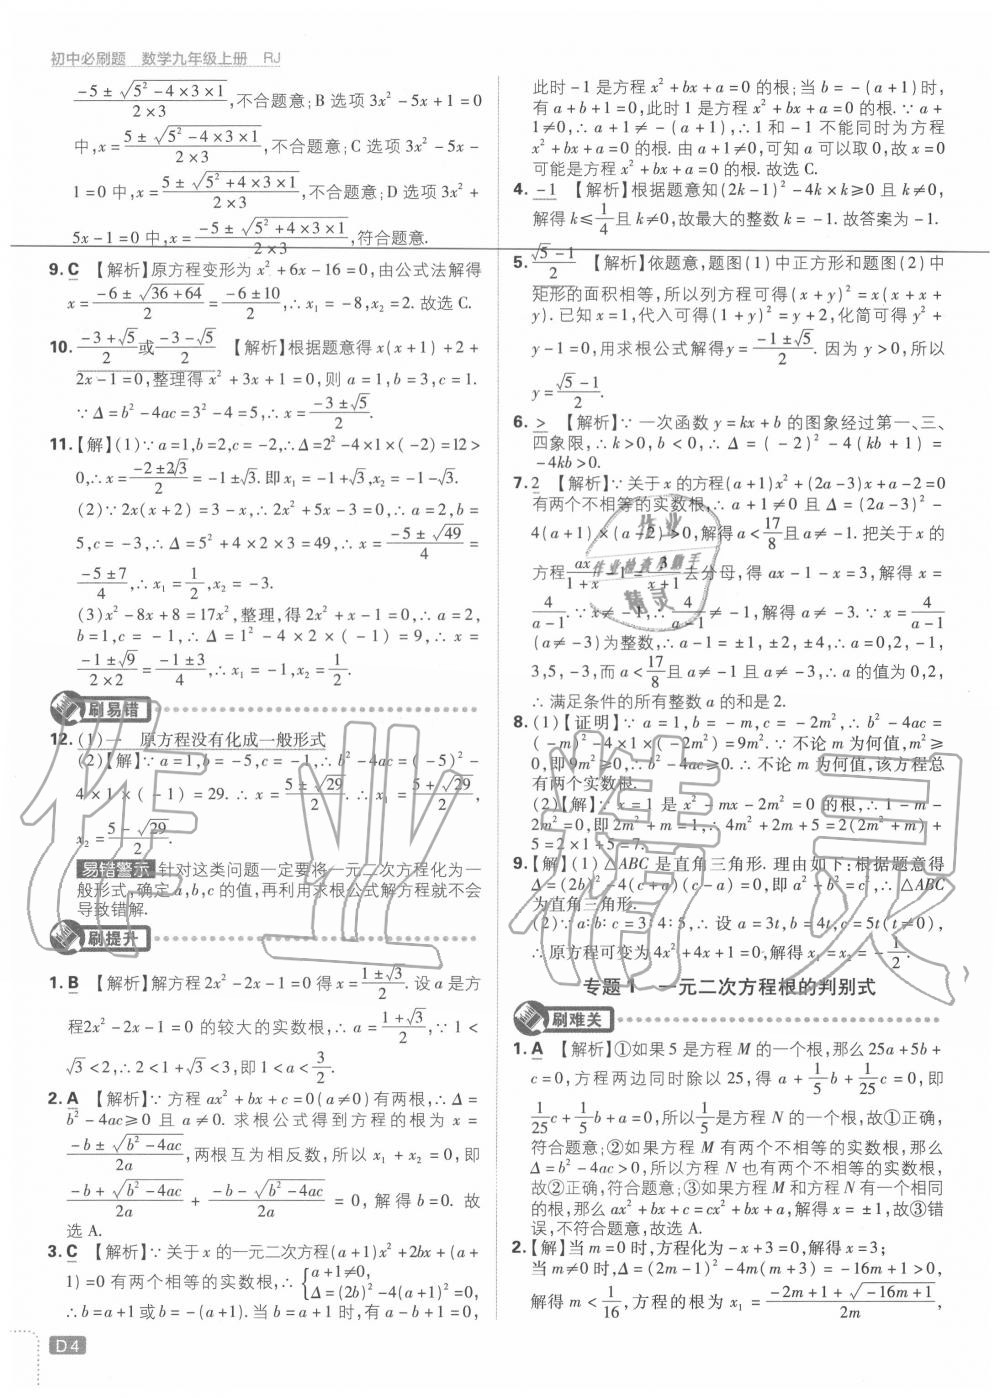 初中必刷题 数学九年级上册 RJ
(-5±√(5²-4×3×1))/(2×3),不合题意;B 选项 3x²-5x+1=0
中,x=(5±√(5²-4×3×1))/(2×3),不合题意;C 选项 3x²-5x-
1=0 中,x=(5±√(5²+4×3×1))/(2×3),不合题意;D 选项 3x²+
5x-1=0 中,x=(-5±√(5²+4×3×1))/(2×3),符合题意.
9. C 【解析】原方程变形为 x²+6x-16=0,由公式法解得
x=(-6±√(36+64))/2=(-6±10)/2,∴x₁=-8,x₂=2. 故选 C.
10. (-3+√5)/2或(-3-√5)/2 【解析】根据题意得 x(x+1)+2+
2x-1=0,整理得 x²+3x+1=0,则 a=1,b=3,c=1.
∵Δ=b²-4ac=3²-4=5,∴x=(-3±√5)/2.
11.【解】(1)∵a=1,b=2,c=-2,∴Δ=2²-4×1×(-2)=12>
0,∴x=(-2±2√3)/2=-1±√3. 即x₁=-1+√3,x₂=-1-√3.
(2)∵2x(x+2)=3-x,∴2x²+5x-3=0,∴a=2,b=
5,c=-3,∴Δ=5²+4×2×3=49,∴x=(-5±√49)/4=
(-5±7)/4,∴x₁=1/2,x₂=-3.
(3)x²-8x+8=17x²,整理,得2x²+x-1=0,∴a=2,
b=1,c=-1,∴Δ=1²-4×2×(-1)=9,∴x=
(-1±√9)/(2×2)=(-1±3)/4,∴x₁=-1,x₂=1/2.
刷易错
12. (1)一 原方程没有化成一般形式
(2)【解】∵a=1,b=-5,c=-1,∴b²-4ac=(-5)²-
4×1×(-1)=29. ∴x=(5±√29)/2. ∴x₁=(5+√29)/2,
x₂=(5-√29)/2.
易错警示 针对这类问题一定要将一元二次方程化为一
般形式,确定 a,b,c 的值,再利用求根公式解方程就不会
导致错解.
刷提升
1. B 【解析】解方程 2x²-2x-1=0 得 x=(1±√3)/2. 设 a 是方
程2x²-2x-1=0 的较大的实数根,∴a=(1+√3)/2,∵1<
√3<2,∴2<1+√3<3,即1<a<3/2.
2. A 【解析】∵方程 ax²+bx+c=0(a≠0)有两根,∴Δ=
b²-4ac≥0 且 a≠0. 求根公式得到方程的根为 x=
(-b±√(b²-4ac))/2a,两根互为相反数,所以 x₁+x₂=0,即
(-b+√(b²-4ac))/2a+(-b-√(b²-4ac))/2a=0,解得 b=0. 故
选 A.
3. C 【解析】∵关于 x 的一元二次方程(a+1)x²+2bx+(a+
1)=0 有两个相等的实数根,∴{a+1≠0, Δ=(2b)²-4(a+1)²=0,
∴b=a+1 或 b=-(a+1). 当 b=a+1 时,有 a-b+1=0,
D4
此时-1 是方程 x²+bx+a=0 的根;当 b=-(a+1)时,
有 a+b+1=0,此时 1 是方程 x²+bx+a=0 的根. ∵a+
1≠0,∴a+1≠-(a+1),∴1 和-1 不能同时为方程
x²+bx+a=0 的根. 由 a+1≠0,可知 a 可以取 0,故 x=0
可能是方程 x²+bx+a=0 的根. 故选 C.
4. -1 【解析】根据题意知(2k-1)²-4k×k≥0 且 k≠0,
解得 k≤1/4且 k≠0,故最大的整数 k=-1. 故答案为-1.
5. (√5-1)/2 【解析】依题意,题图(1)中正方形和题图(2)中
矩形的面积相等,所以列方程可得(x+y)²=x(x+x+
y). 已知 x=1,代入可得(1+y)²=y+2,化简可得 y²+
y-1=0,用求根公式解得y=(-1±√5)/2. 因为 y>0,所以
y=(√5-1)/2.
6. > 【解析】∵一次函数 y=kx+b 的图象经过第一、三、
四象限,∴k>0,b<0,∴Δ=(-2)²-4(kb+1)=
-4kb>0.
7. 2 【解析】∵关于 x 的方程(a+1)x²+(2a-3)x+a-2=0
有两个不相等的实数根,∴a+1≠0 且 Δ=(2a-3)²-
4(a+1)×(a-2)>0,解得 a<17/8且 a≠-1. 把关于 x 的
方程ax/(1+x)-1=3/(x+1)去分母,得 ax-1-x=3,解得 x=
4/(a-1). ∵x≠-1,∴4/(a-1)≠-1,解得 a≠-3. ∵x=4/(a-1)
(a≠-3)为整数,∴a-1=±1,±2,±4,∴a=0,2,-1,
3,5,-3,而 a<17/8且 a≠-1 且 a≠-3,∴a 的值为 0,2,
∴满足条件的所有整数 a 的和是 2.
8. (1)【证明】∵a=1,b=-m,c=-2m²,∴b²-4ac=
(-m)²-4×1×(-2m²)=9m². ∵不论 m 为何值,m²≥
0,即9m²≥0,∴b²-4ac≥0. ∴不论 m 为何值,该方程总
有两个实数根.
(2)【解】∵x=1 是 x²-mx-2m²=0 的根,∴1-m-
2m²=0,即2m²+m=1,∴4m²+2m+5=2(2m²+m)+
5=2×1+5=7.
9.【解】(1)△ABC 是直角三角形. 理由如下:根据题意得
Δ=(2b)²-4(c+a)(c-a)=0,即 a²+b²=c²,∴△ABC
为直角三角形.
(2)∵a:b:c=3:4:5,∴设 a=3t,b=4t,c=5t(t≠0),
∴原方程可变为 4x²+4x+1=0,解得 x₁=x₂=-1/2.
专题 1 一元二次方程根的判别式
刷难关
1. A 【解析】①如果 5 是方程 M 的一个根,那么 25a+5b+
c=0,方程两边同时除以 25,得 a+1/5b+1/25c=0,即
1/25c+1/5b+a=0,所以1/5是方程 N 的一个根,故①正确,
符合题意;②如果方程 M 有两个不相等的实数根,那么
Δ=b²-4ac>0,所以方程 N 也有两个不相等的实数根,
故②正确,符合题意;③如果方程 M 和方程 N 有一个相同
的根,那么 ax²+bx+c=cx²+bx+a,解得 x=±1,故③错
误,不符合题意,故选 A.
2.【解】当 m=0 时,方程化为-x+3=0,解得 x=3;
当 m≠0 时,Δ=(2m-1)²-4m(m+3)=-16m+1>0,
解得 m<1/16,方程的根为 x₁=(-2m+1+√(-16m+1))/2m,
作业
作业检查小助手
精灵
作业精灵